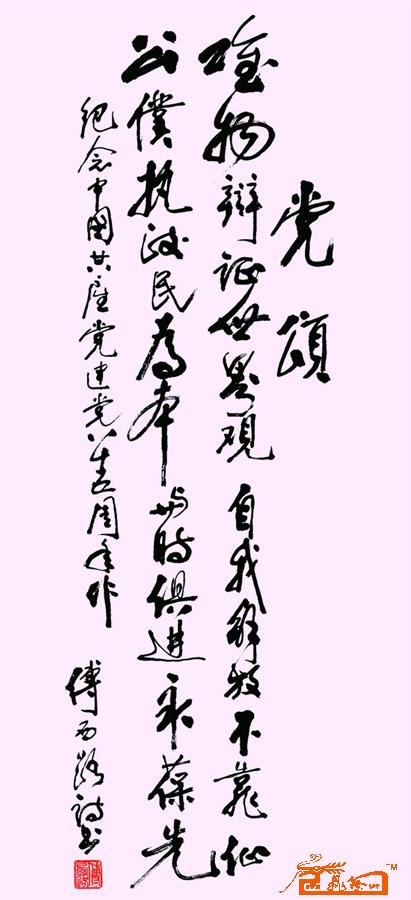 党颂
唯物辩证世界观 自我解放不靠仙
公僕执政民为本 与时俱进永葆先
纪念中国共产党建党八十五周年作
傅西路诗书
TM